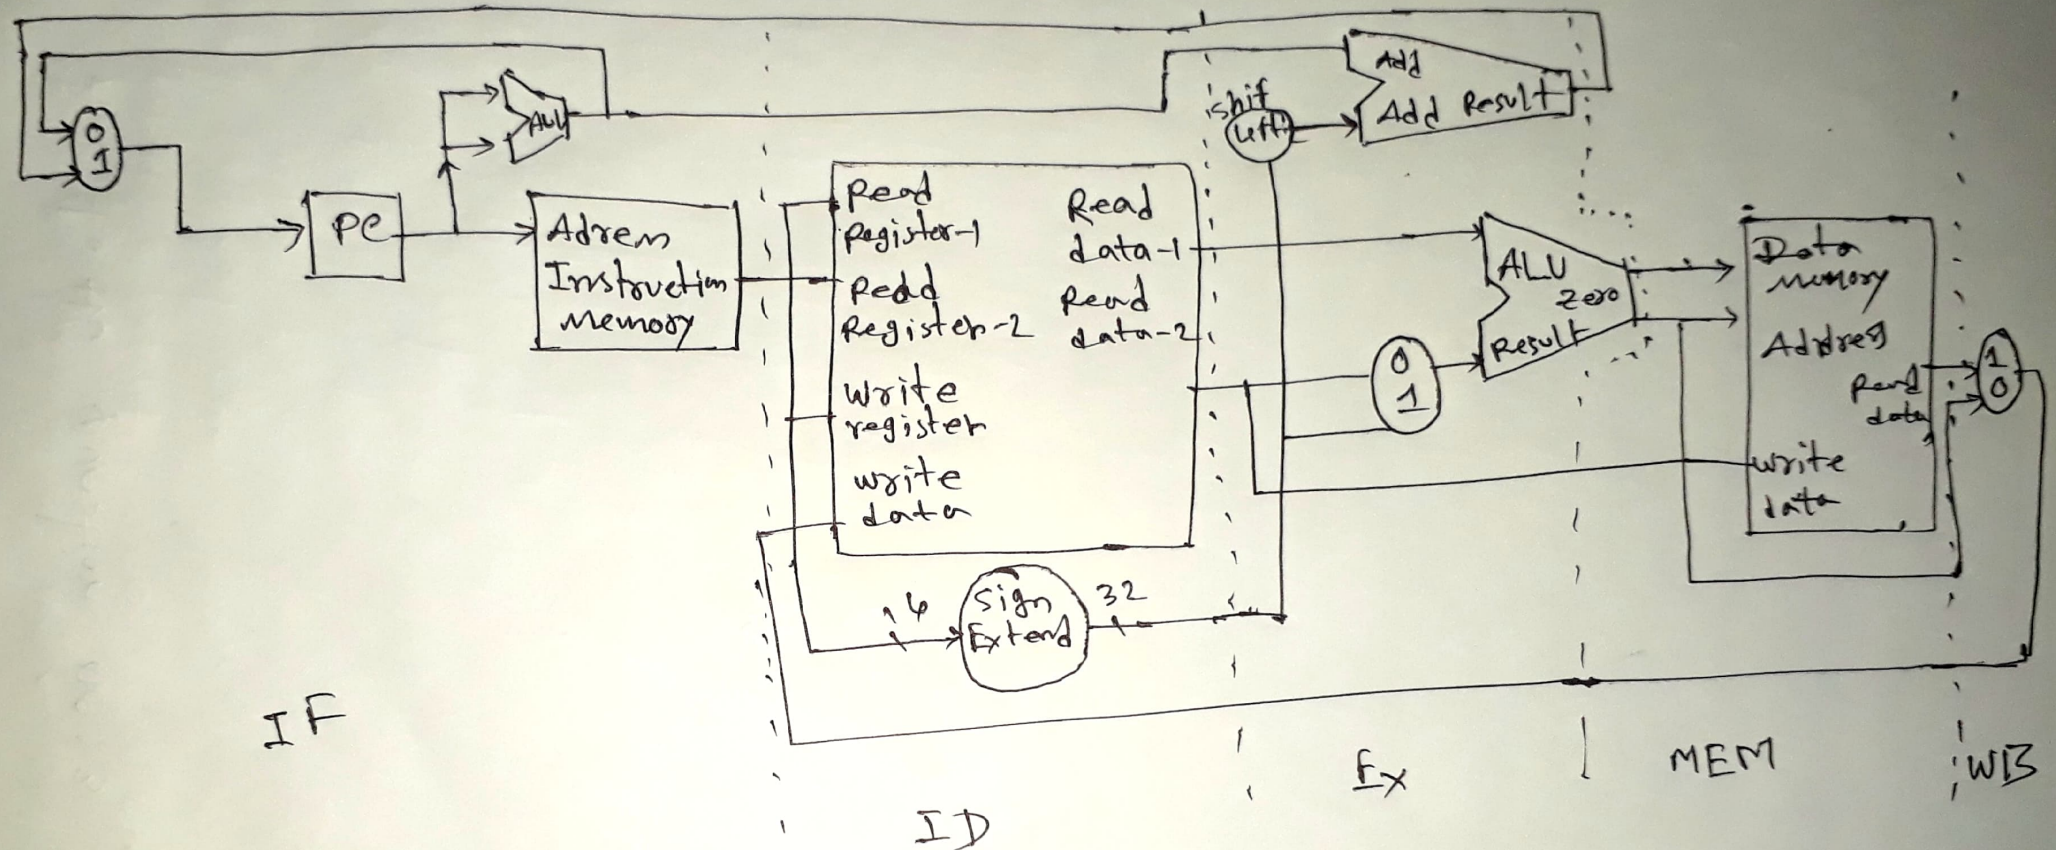 0
1
PC
ALU
Adress
Instruction
Memory
Read
Register-1
Read
Register-2
Write
register
write
data
Read
data-1
Read
data-2
Sign
Extend
32
shif
left
Add
Add Result
0
1
ALU
Zero
Result
Data
Memory
Address
Read
data
write
data
1
0
IF
ID
Ex
MEM
WB